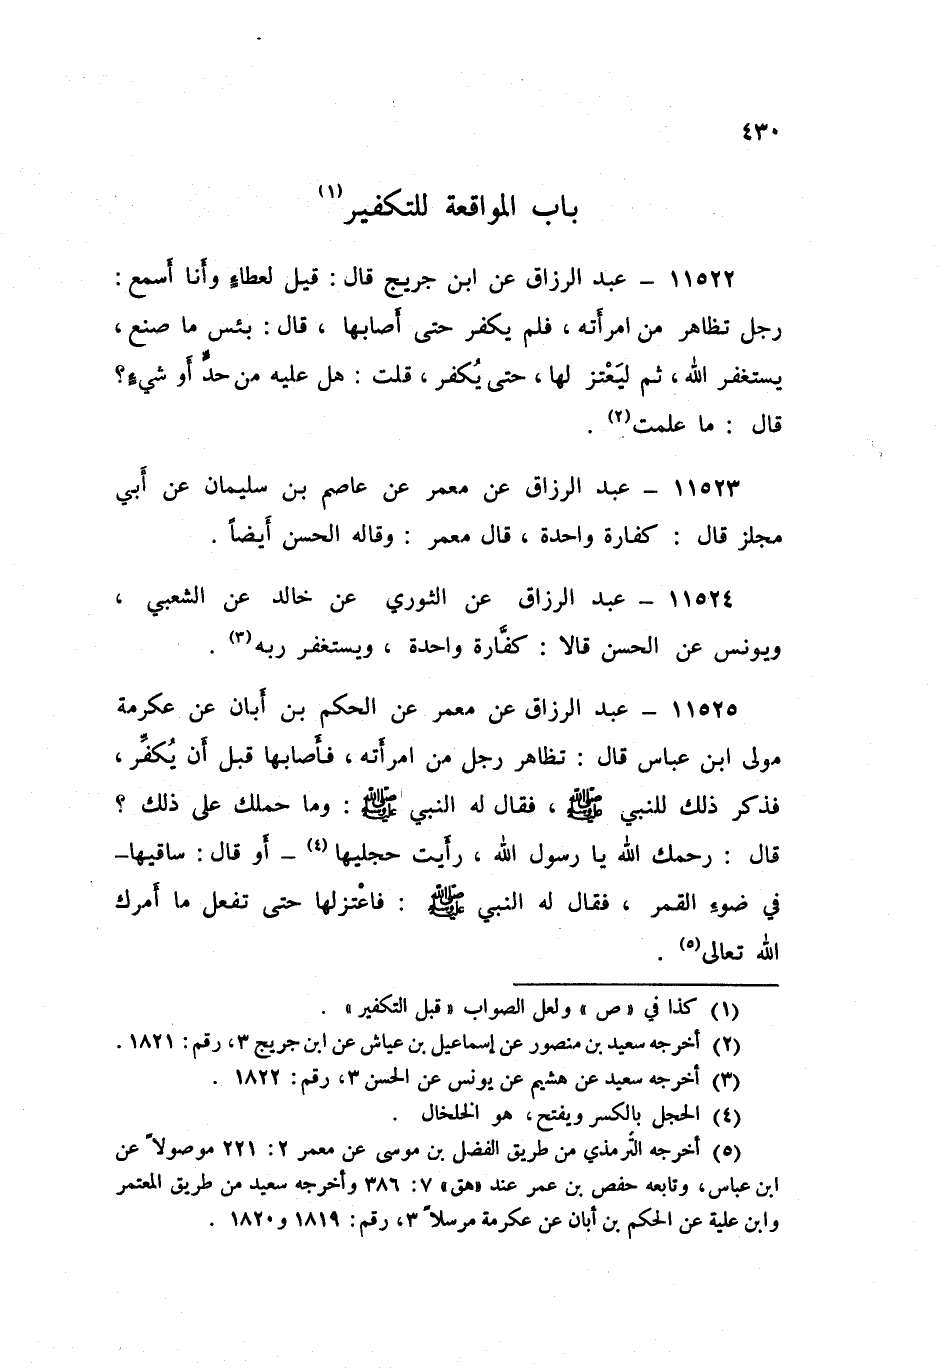 ٤٣٠
باب المواقعة للتكفير(١)
١١٥٢٢ – عبد الرزاق عن ابن جريج قال : قيل لعطاءٍ وأَنا أَسمع :
رجل تظاهر من امرأَته ، فلم يكفر حتى أَصابها ، قال : بئس ما صنع ،
يستغفر الله ، ثم ليَعْتز لها ، حتى يُكفر ، قلت : هل عليه من حدٌّ أَو شيءٍ؟
قال : ما علمت(٢) .
١١٥٢٣ – عبد الرزاق عن معمر عن عاصم بن سليمان عن أَبي
مجلز قال : كفارة واحدة ، قال معمر : وقاله الحسن أَيضاً .
١١٥٢٤ – عبد الرزاق عن الثوري عن خالد عن الشعبي ،
ويونس عن الحسن قالا : كفَّارة واحدة ، ويستغفر ربه(٣) .
١١٥٢٥ – عبد الرزاق عن معمر عن الحكم بن أَبان عن عكرمة
مولى ابن عباس قال : تظاهر رجل من امرأَته ، فأَصابها قبل أَن يُكفِّر ،
فذكر ذلك للنبي ﷺ ، فقال له النبي ﷺ : وما حملك على ذلك ؟
قال : رحمك الله يا رسول الله ، رأَيت حجليها(٤) – أَو قال : ساقيها–
في ضوءِ القمر ، فقال له النبي ﷺ : فاعْتزلها حتى تفعل ما أَمرك
الله تعالى(٥) .
(١) كذا في « ص » ولعل الصواب « قبل التكفير » .
(٢) أخرجه سعيد بن منصور عن إسماعيل بن عياش عن ابن جريج ٣، رقم: ١٨٢١ .
(٣) أخرجه سعيد عن هشيم عن يونس عن الحسن ٣، رقم: ١٨٢٢ .
(٤) الحجل بالكسر ويفتح، هو الخلخال .
(٥) أخرجه التُرمذي من طريق الفضل بن موسى عن معمر ٢: ٢٢١ موصولاً عن
ابن عباس، وتابعه حفص بن عمر عند «هق» ٧: ٣٨٦ وأخرجه سعيد من طريق المعتمر
وابن علية عن الحكم بن أبان عن عكرمة مرسلاً ٣، رقم: ١٨١٩ و١٨٢٠ .